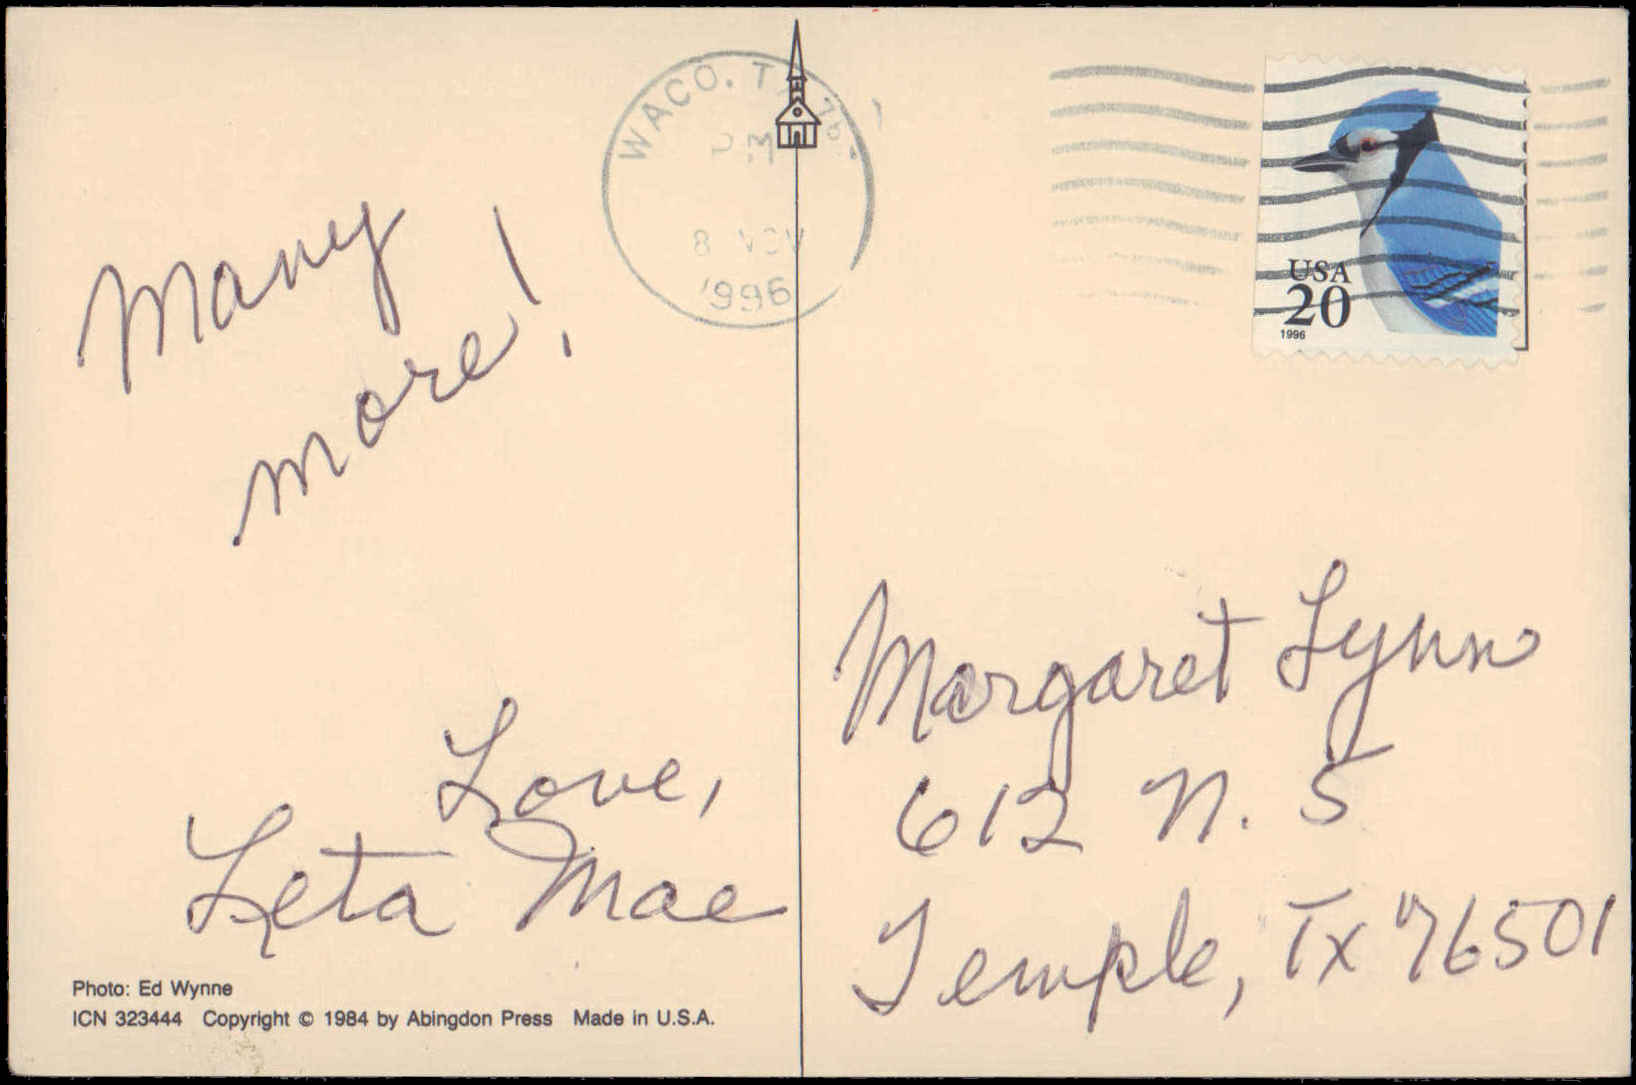 Many
more!
Love,
Leta Mae
Photo: Ed Wynne
ICN 323444 Copyright © 1984 by Abingdon Press Made in U.S.A.
WACO, T
PM
8 NOV
1996
USA
20
1996
Margaret Lynn
612 N. 5
Temple, Tx 76501